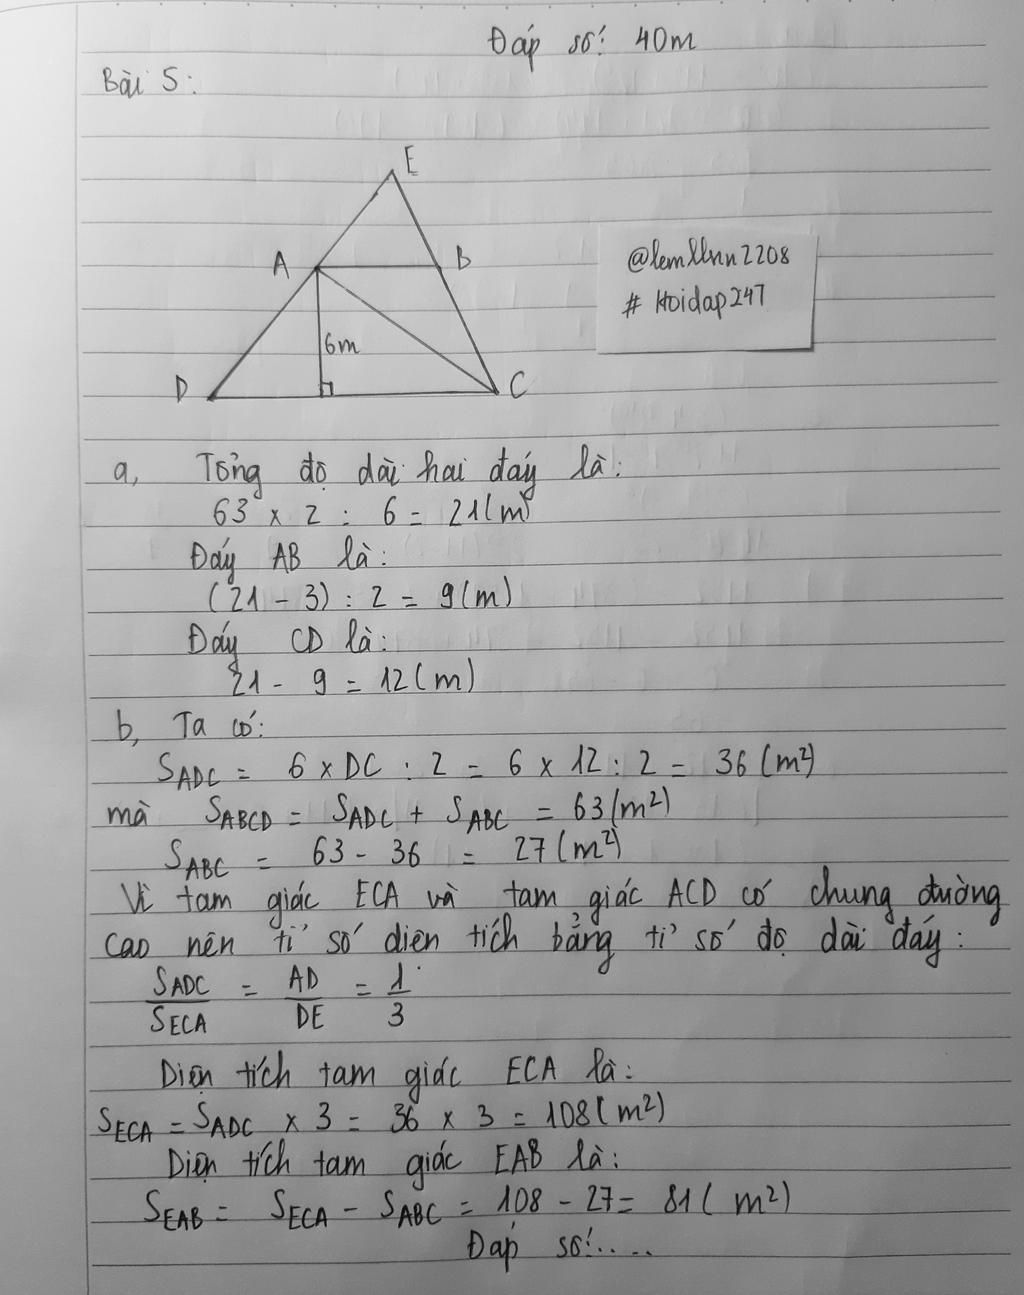 Đáp số: 40m
Bài 5:
E
A
B
@lemllnn2208
# Hoidap247
6m
D
C
a, Tổng độ dài hai đáy là:
63 x 2 : 6 = 21(m)
Đáy AB là:
(21 - 3) : 2 = 9(m)
Đáy CD là:
21 - 9 = 12(m)
b, Ta có:
SADC = 6 x DC : 2 = 6 x 12 : 2 = 36 (m²)
mà SABCD = SADC + SABC = 63(m²)
SABC = 63 - 36 = 27(m²)
Vì tam giác ECA và tam giác ACD có chung đường
cao nên tỉ số diện tích bằng tỉ số độ dài đáy:
SADC/SECA = AD/DE = 1/3
Diện tích tam giác ECA là:
SECA = SADC x 3 = 36 x 3 = 108(m²)
Diện tích tam giác EAB là:
SEAB = SECA - SABC = 108 - 27 = 81( m²)
Đáp số:.....